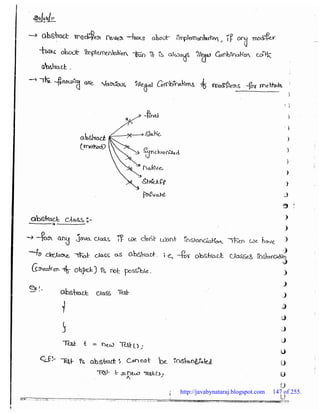 → abstract modifier never talks about implementation, if any modifier
talks about implementation then it is always illegal combination with
abstract.
→ The following are various illegal combinations of modifiers for methods
final
static
abstract
(method)
synchronized
native
strictfp
private
abstract class :-
→ for any java class if we don't want instanciation, then we have
to declare that class as abstract. i.e, for abstract classes instanciation
(creation of object) is not possible.
Eg :-
abstract class Test
{
}
Test t = new Test();
CE:- Test is abstract; cannot be instantiated
Test t = new Test();
^
http://javabynataraj.blogspot.com 147 of 255.